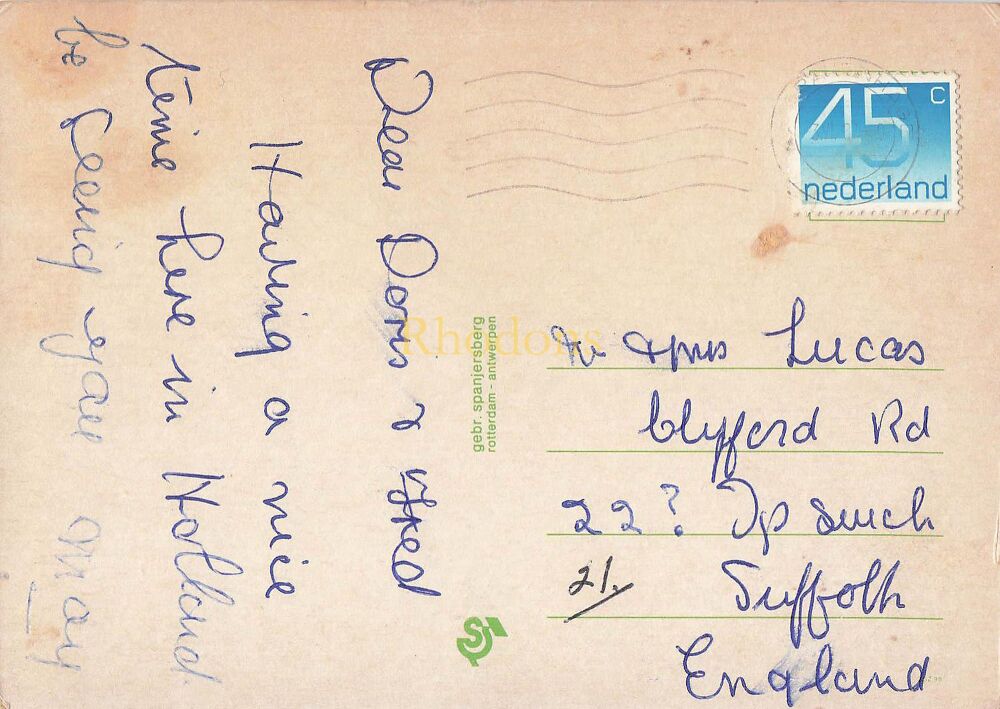 Dear Doris & Fred
Having a nice
time here in Holland
be seeing you
May
gebr. spanjersberg
rotterdam - antwerpen
45 c
nederland
Rhodons
Mr & Mrs Lucas
Clyfford Rd
22? Ipswich
21.
Suffolk
England